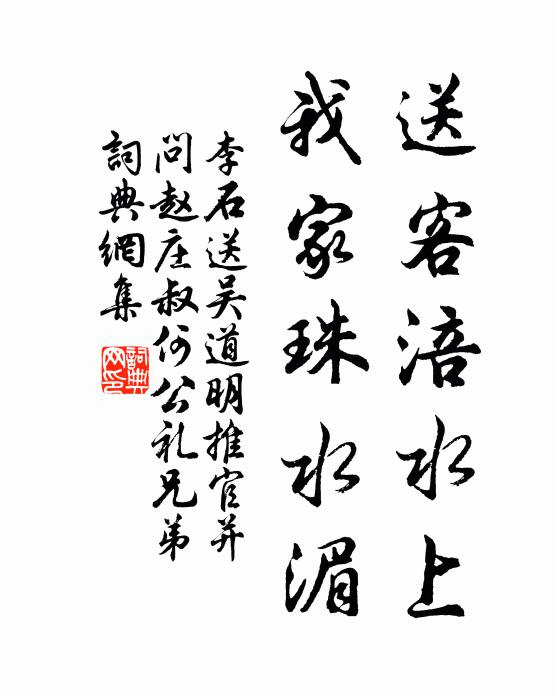 送客涪水上
我家珠水湄
李石送吴道明推官并
问赵庄叔何公礼兄弟
詞典網集
詞典网印